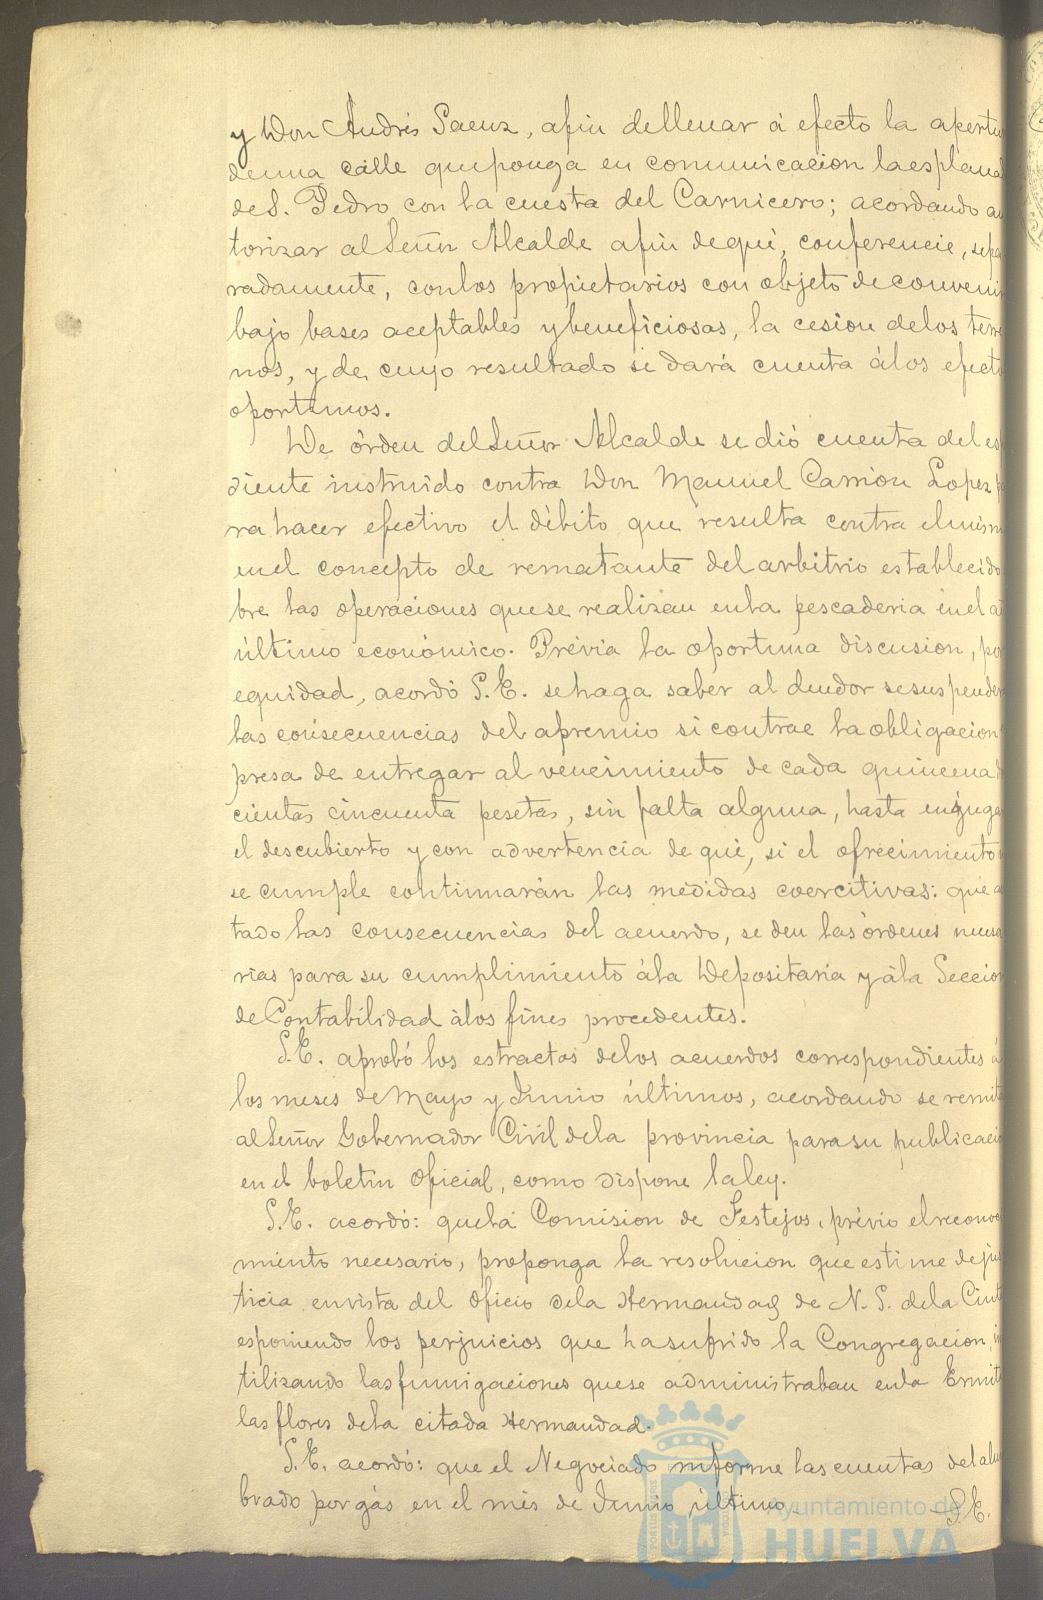 y Don Andrés Saenz, afin dellevar á efecto la apertu
deuna calle queponga en comunicacion laesplana
de S. Pedro con la cuesta del Carnicero; acordando au
torizar al Señor Alcalde afin dequé, conferencie, sepa
radamente, conlos propietarios con objeto de convenir
bajo bases aceptables y beneficiosas, la cesion delos terre
nos, y de cuyo resultado se dará cuenta álos efecto
oportunos.
De órden del Señor Alcalde se dió cuenta del es
diente instruido contra Don Manuel Carrion Lopez pa
ra hacer efectivo el débito que resulta contra elmism
enel concepto de rematante del arbitrio establecido
bre las operaciones quese realizan enla pescaderia enel a
último económico. Prévia la oportuna discusion, por
equidad, acordó S.E. sehaga saber al deudor sesuspender
las consecuencias del apremio si contrae la obligacion
presa de entregar al vencimiento de cada quincena d
cientas cincuenta pesetas, sin falta alguna, hasta enjuga
el descubierto y con advertencia de qué, si el ofrecimiento n
se cumple continuarán las medidas coercitivas: que a
tado las consecuencias del acuerdo, se den las órdenes necesa
rias para su cumplimiento ála Depositaria y ála Seccion
de Contabilidad álos fines procedentes.
S.E. aprobó los estractos delos acuerdos correspondientes á
los meses de Mayo y Junio últimos, acordando se remit
al Señor Gobernador Civil dela provincia para su publicacio
en el boletin Oficial, como dispone laley.
S.E. acordó: quela Comision de Festejos, prévio elreconoci
miento necesario, proponga la resolucion que estime dejus
ticia, envista del oficio dela Hermandad de N. S. dela Cinta
esponiendo los perjuicios que hasufrido la Congregacion, in
tilizando lasfumigaciones quese administraban enla Ermita
las flores dela citada Hermandad.
S.E. acordó: que el Negociado informe las cuentas del alum
brado por gás en el mes de Junio último. S.E.
Ayuntamiento de
HUELVA